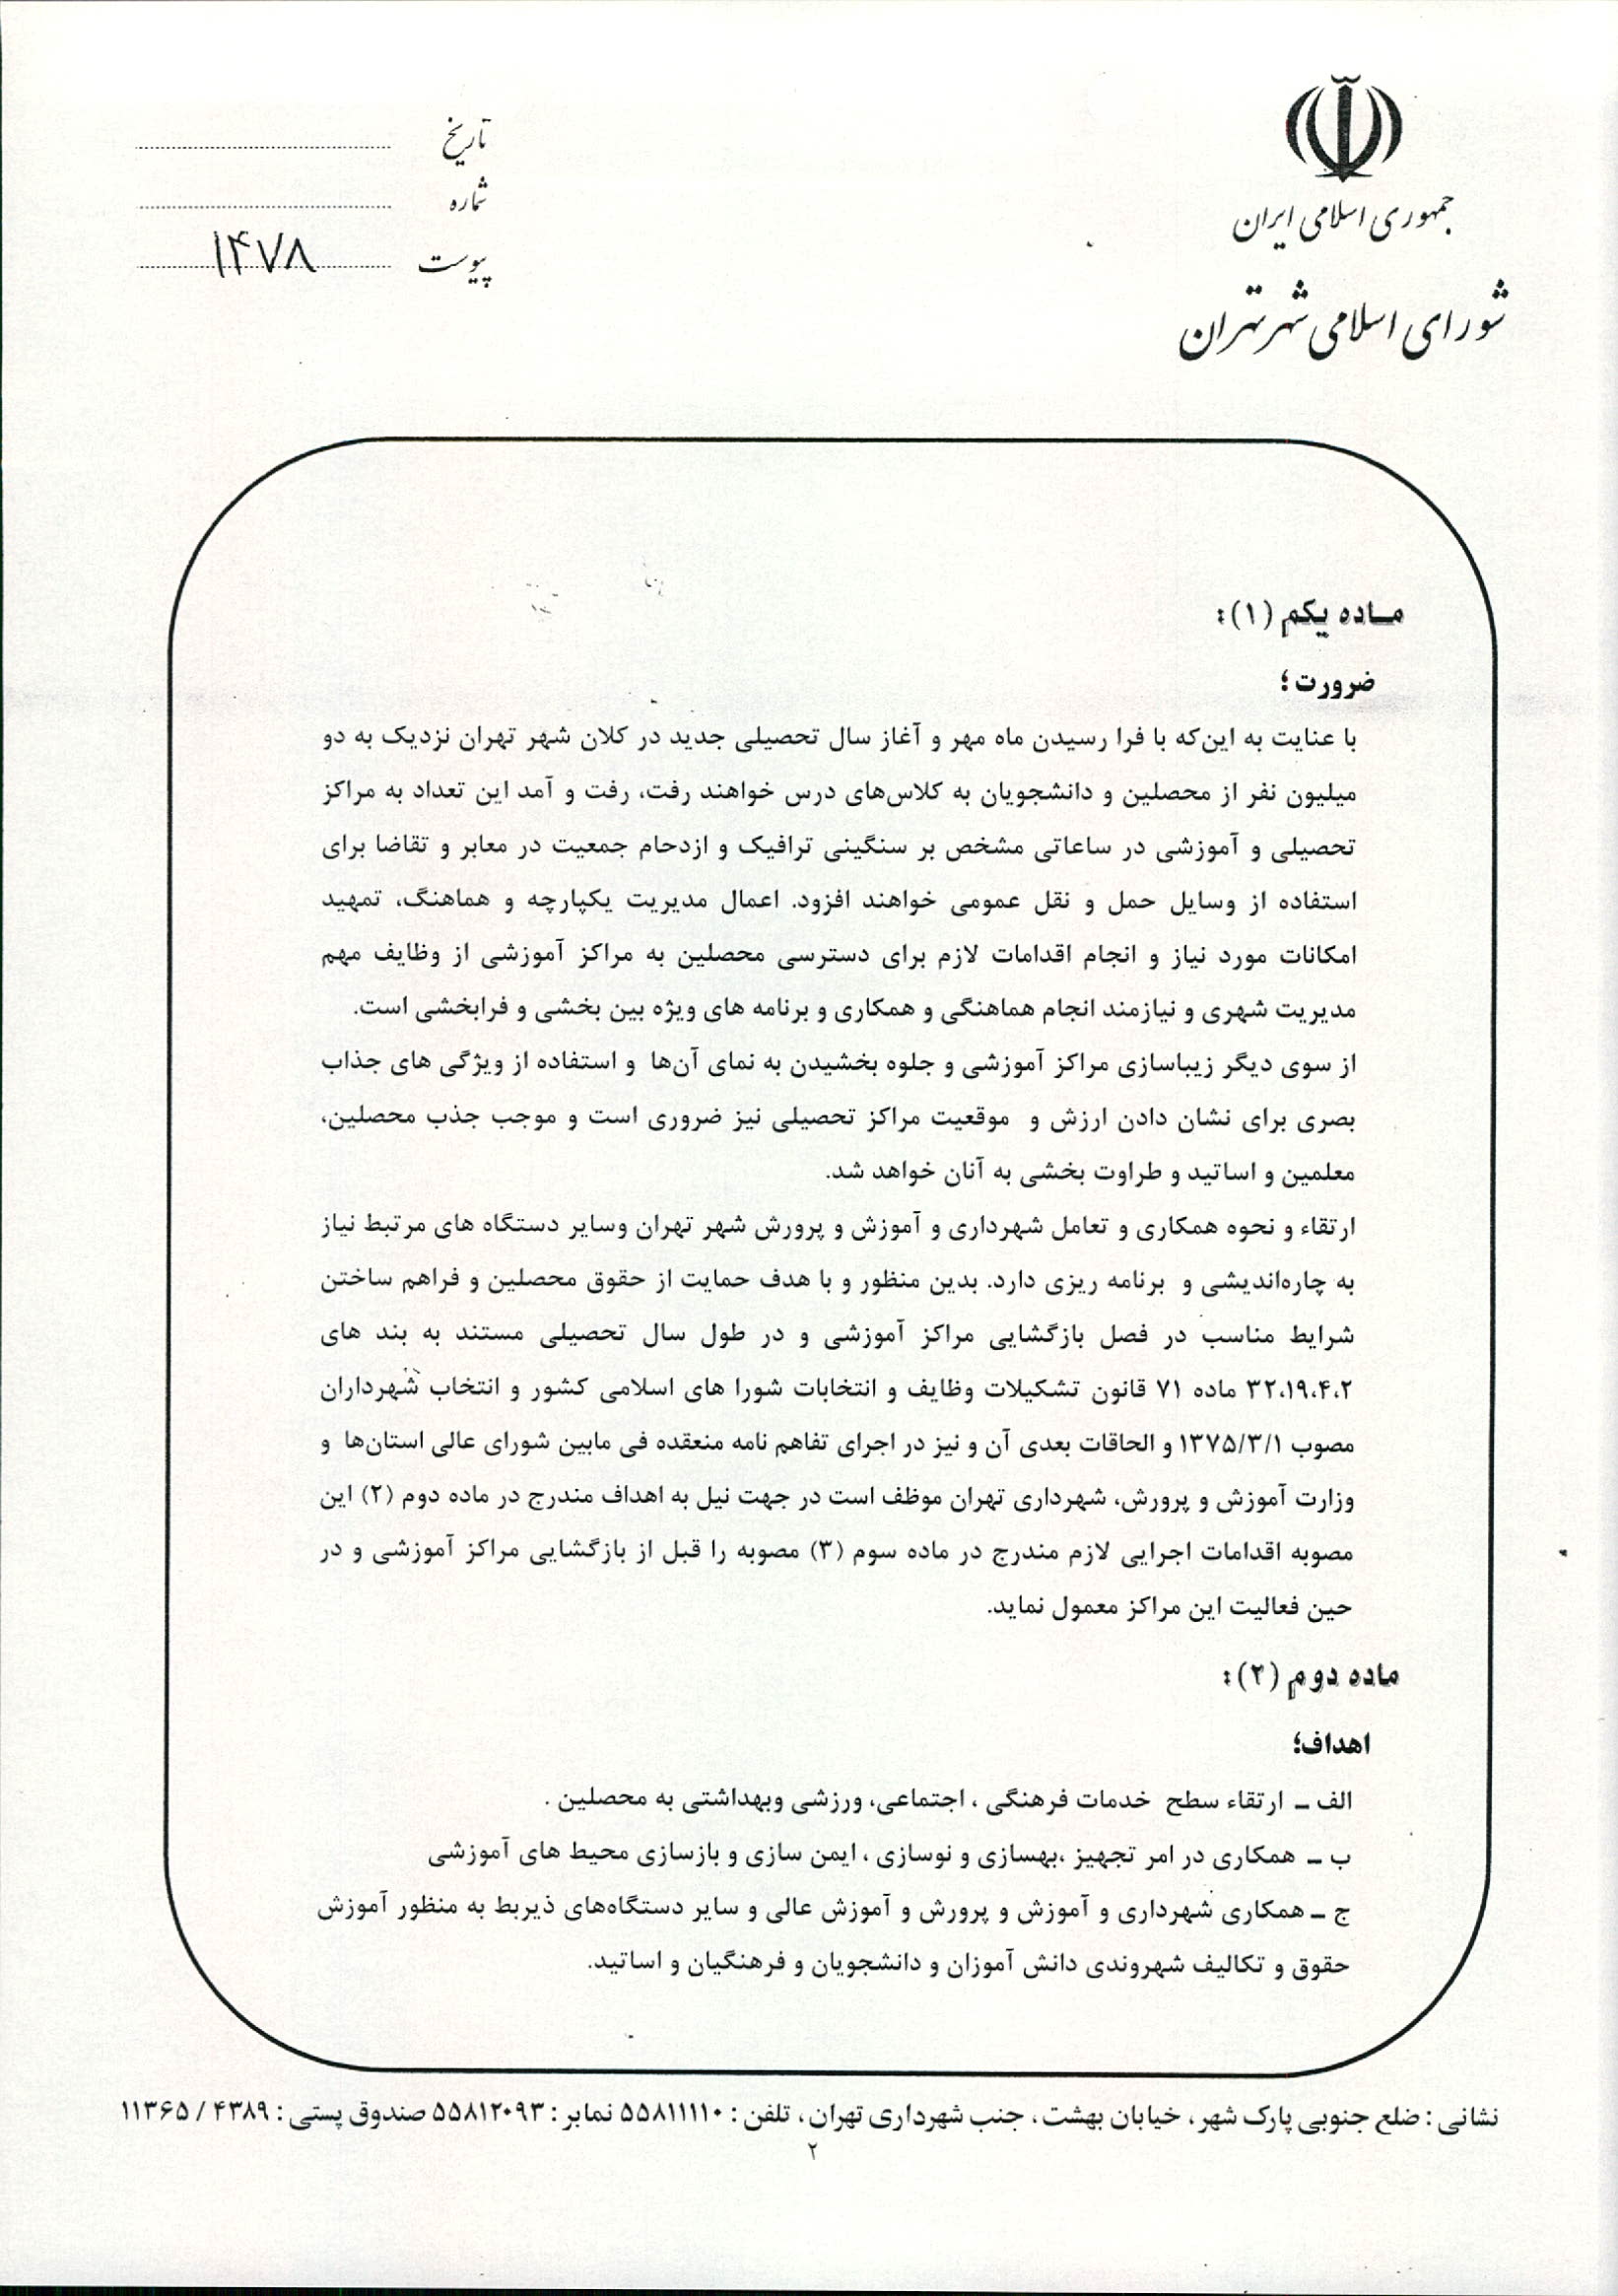 جمهوری اسلامی ایران
شورای اسلامی شهر تهران
تاریخ
شماره
پیوست ۱۴۷۸
مـاده یکم (۱):
ضرورت؛
با عنایت به این‌که با فرا رسیدن ماه مهر و آغاز سال تحصیلی جدید در کلان شهر تهران نزدیک به دو
میلیون نفر از محصلین و دانشجویان به کلاس‌های درس خواهند رفت، رفت و آمد این تعداد به مراکز
تحصیلی و آموزشی در ساعاتی مشخص بر سنگینی ترافیک و ازدحام جمعیت در معابر و تقاضا برای
استفاده از وسایل حمل و نقل عمومی خواهند افزود. اعمال مدیریت یکپارچه و هماهنگ، تمهید
امکانات مورد نیاز و انجام اقدامات لازم برای دسترسی محصلین به مراکز آموزشی از وظایف مهم
مدیریت شهری و نیازمند انجام هماهنگی و همکاری و برنامه های ویژه بین بخشی و فرابخشی است.
از سوی دیگر زیباسازی مراکز آموزشی و جلوه بخشیدن به نمای آن‌ها و استفاده از ویژگی های جذاب
بصری برای نشان دادن ارزش و موقعیت مراکز تحصیلی نیز ضروری است و موجب جذب محصلین،
معلمین و اساتید و طراوت بخشی به آنان خواهد شد.
ارتقاء و نحوه همکاری و تعامل شهرداری و آموزش و پرورش شهر تهران وسایر دستگاه های مرتبط نیاز
به چاره‌اندیشی و برنامه ریزی دارد. بدین منظور و با هدف حمایت از حقوق محصلین و فراهم ساختن
شرایط مناسب در فصل بازگشایی مراکز آموزشی و در طول سال تحصیلی مستند به بند های
۳۲،۱۹،۴،۲ ماده ۷۱ قانون تشکیلات وظایف و انتخابات شورا های اسلامی کشور و انتخاب شهرداران
مصوب ۱۳۷۵/۳/۱ و الحاقات بعدی آن و نیز در اجرای تفاهم نامه منعقده فی مابین شورای عالی استان‌ها و
وزارت آموزش و پرورش، شهرداری تهران موظف است در جهت نیل به اهداف مندرج در ماده دوم (۲) این
مصوبه اقدامات اجرایی لازم مندرج در ماده سوم (۳) مصوبه را قبل از بازگشایی مراکز آموزشی و در
حین فعالیت این مراکز معمول نماید.
ماده دوم (۲):
اهداف؛
الف ـ ارتقاء سطح خدمات فرهنگی ، اجتماعی، ورزشی وبهداشتی به محصلین .
ب ـ همکاری در امر تجهیز ،بهسازی و نوسازی ، ایمن سازی و بازسازی محیط های آموزشی
ج ـ همکاری شهرداری و آموزش و پرورش و آموزش عالی و سایر دستگاه‌های ذیربط به منظور آموزش
حقوق و تکالیف شهروندی دانش آموزان و دانشجویان و فرهنگیان و اساتید.
نشانی : ضلع جنوبی پارک شهر ، خیابان بهشت ، جنب شهرداری تهران ، تلفن : ۵۵۸۱۱۱۱۰ نمابر : ۵۵۸۱۲۰۹۳ صندوق پستی : ۴۳۸۹ / ۱۱۳۶۵
۲